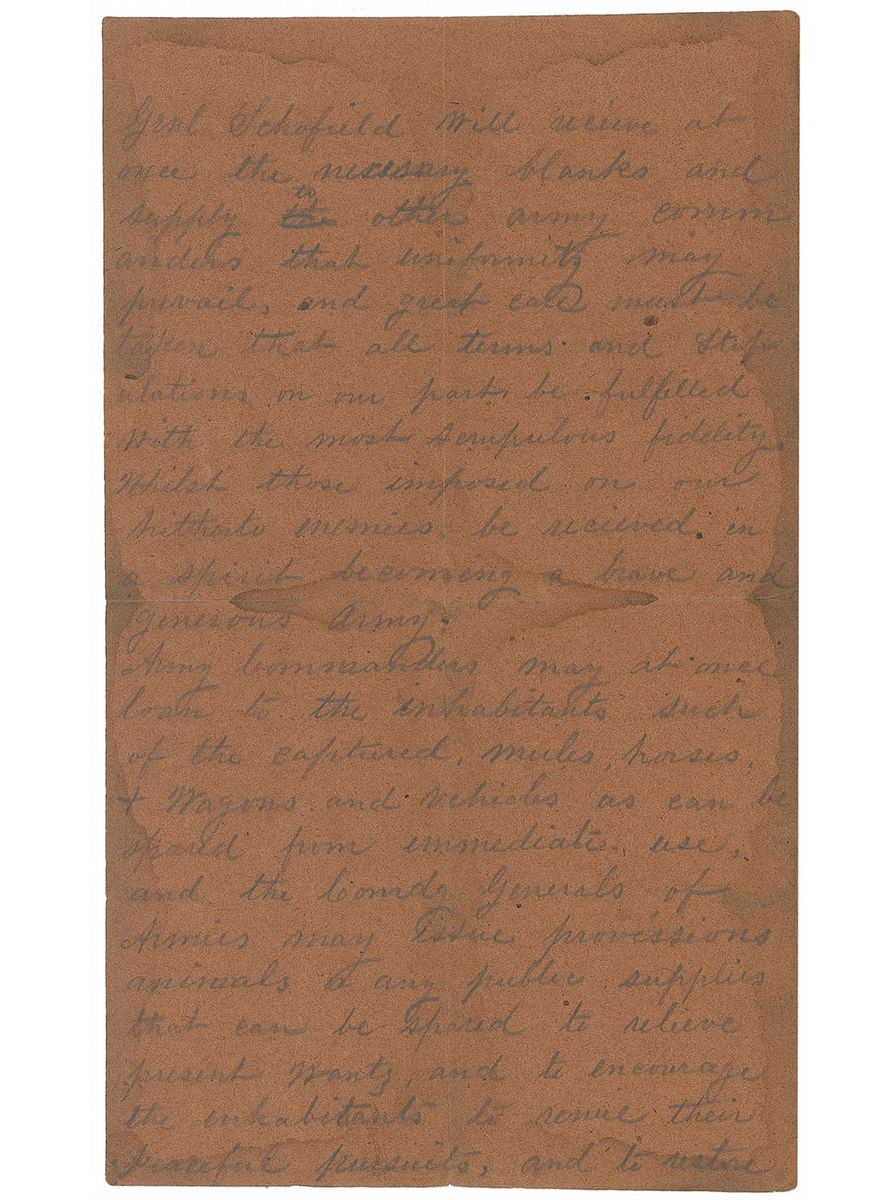 Genl Schofield will recieve at
once the necessary blanks and
supply the other army comm
anders that uniformity may
prevail, and great care must be
taken that all terms and stip
ulations on our part be fulfilled
with the most scrupulous fidelity.
Whilst those imposed on our
hitherto enemies be recieved in
a spirit becoming a brave and
generous Army.
Army Commanders may at once
loan to the inhabitants such
of the captured, mules, horses,
+ Wagons and vehicles as can be
spared from immediate use,
and the Comdg Generals of
Armies may issue provissions
animals & any public supplies
that can be spared to relieve
present wants, and to encourage
the inhabitants to their
peaceful pursuits, and to restore